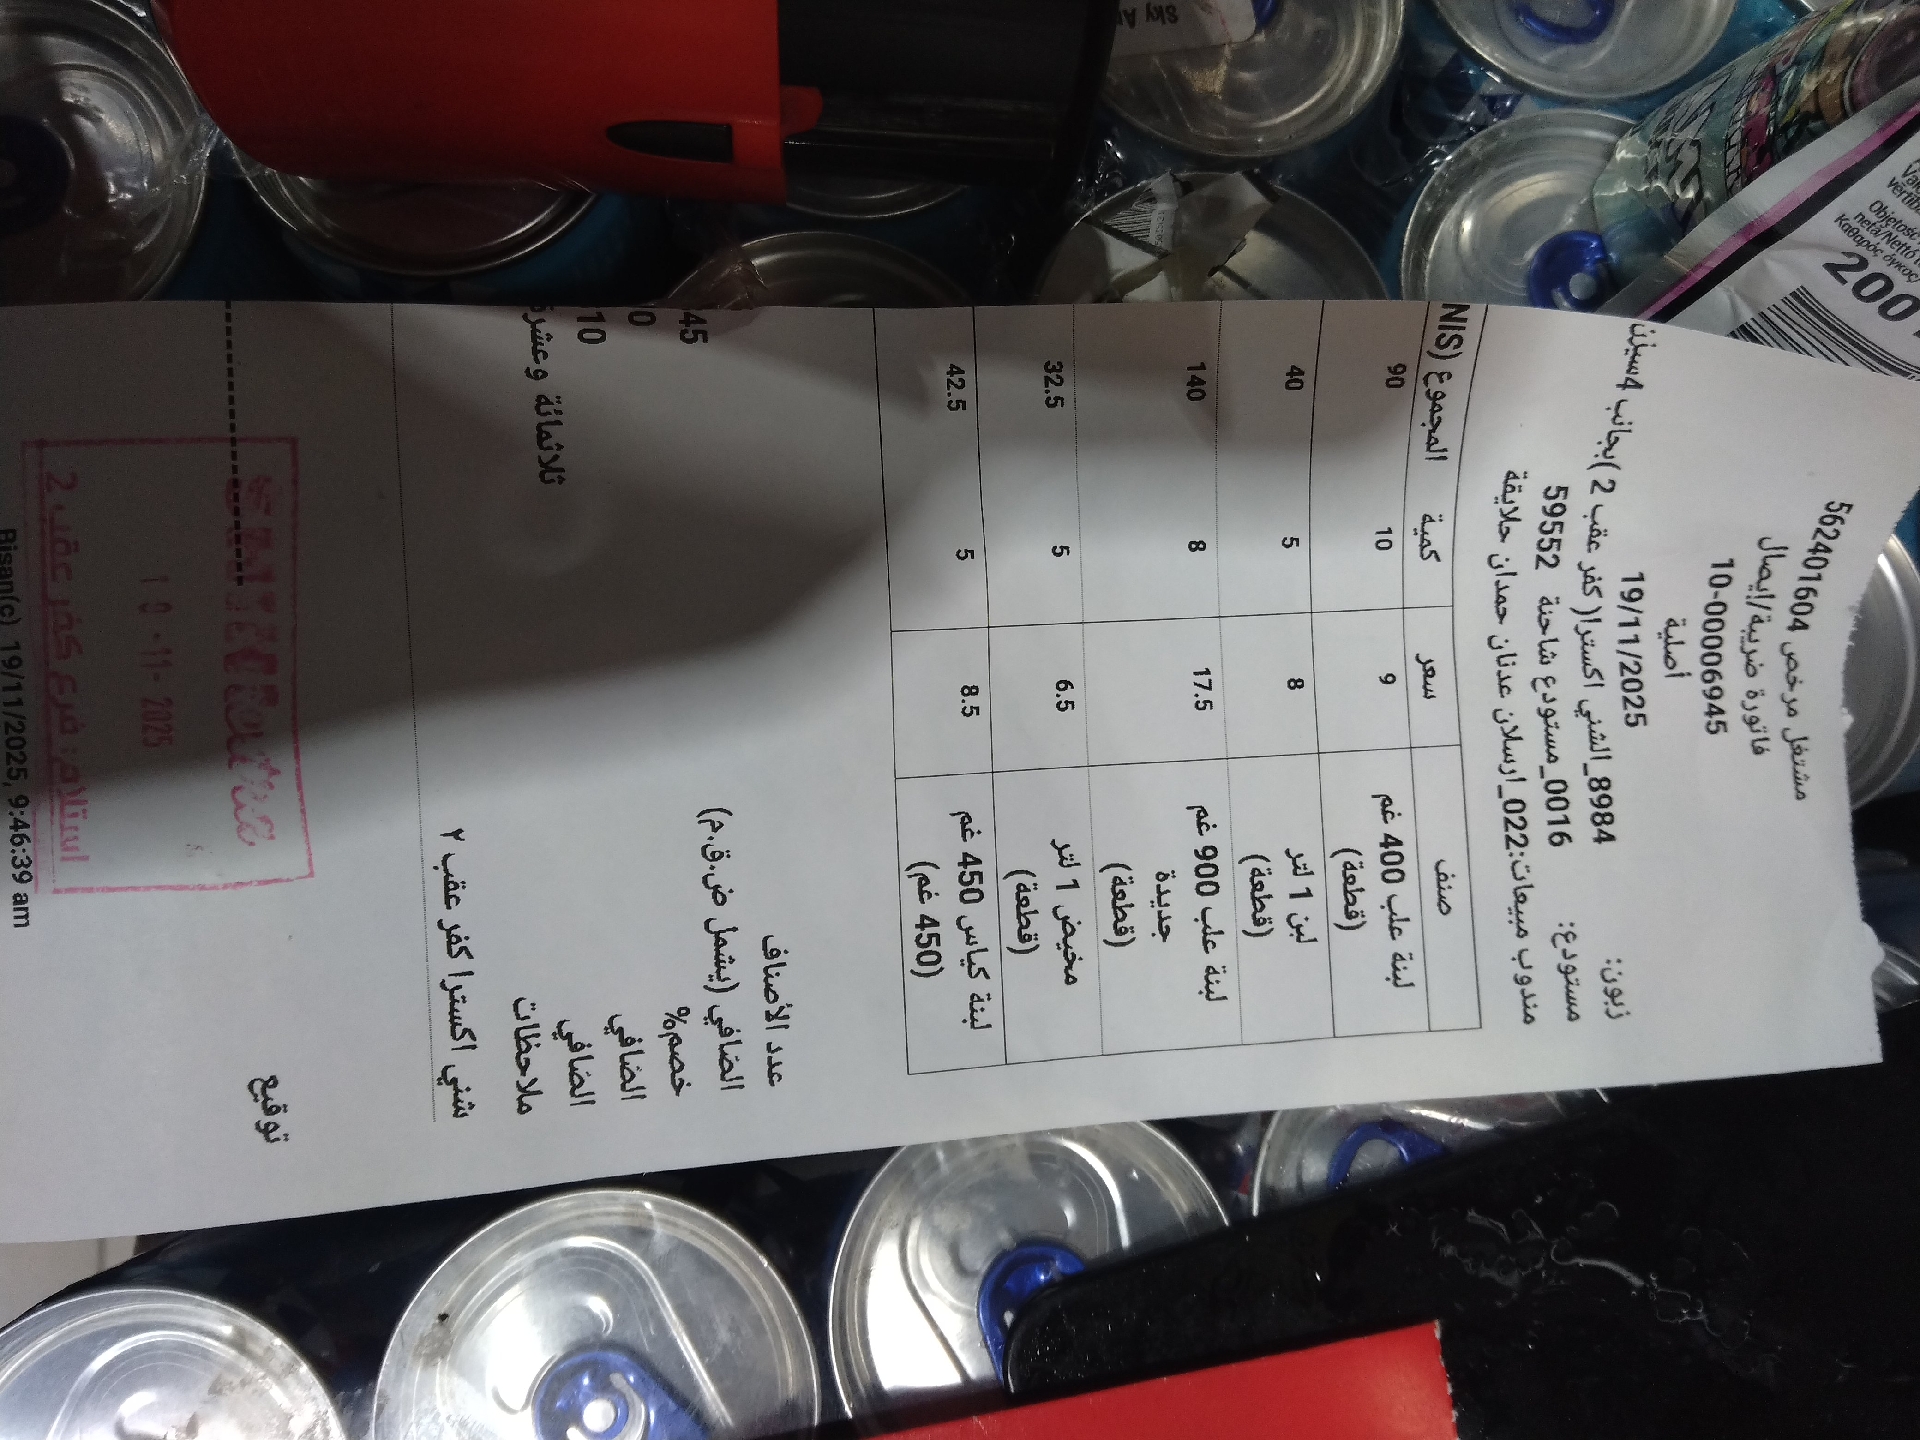 مشتغل مرخص 562401604
فاتورة ضريبة/إيصال
10-00006945
أصلية
19/11/2025
زبون: 8984_الشني اكسترا(كفر عقب 2 )بجانب 4سيزن
مستودع: 0016_مستودع شاحنة 59552
مندوب مبيعات:022_ارسلان عدنان حمدان حلايقة
صنف سعر كمية المجموع (NIS
لبنة علب 400 غم 9 10 90
(قطعة)
لبن 1 لتر 8 5 40
(قطعة)
لبنة علب 900 غم 17.5 8 140
جديدة
(قطعة)
مخيض 1 لتر 6.5 5 32.5
(قطعة)
لبنة كياس 450 غم 8.5 5 42.5
(450 غم)
عدد الأصناف
الصافي (يشمل ض.ق.م) 45
خصم% 0
الصافي 10
الصافي ثلاثمائة وعشرة
ملاحظات
شني اكسترا كفر عقب ٢
توقيع
-11- 2025
استلام: فرع كفر عقب 2
Bisan(c) 19/11/2025, 9:46:39 am
Sky
Objętość
netá/Nettó
Καθαρός όγκος
200